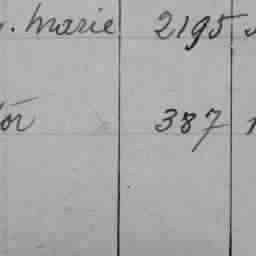 . Marie 2195
387